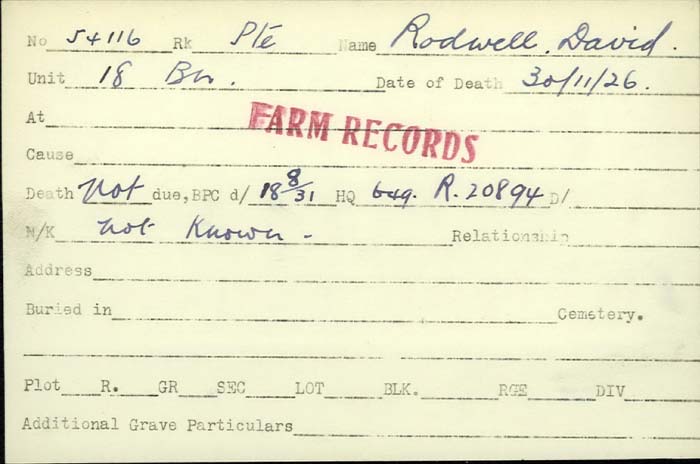 No 54116 Rk Pte Name Rodwell, David.
Unit 18 Bn. Date of Death 30/11/26.
At
FARM RECORDS
Cause
Death not due, BPC d/ 18 8/31 HQ 649. R. 20894 D/
N/K not Known - Relationship
Address
Buried in Cemetery.
Plot R. GR SEC LOT BLK. RGE DIV
Additional Grave Particulars